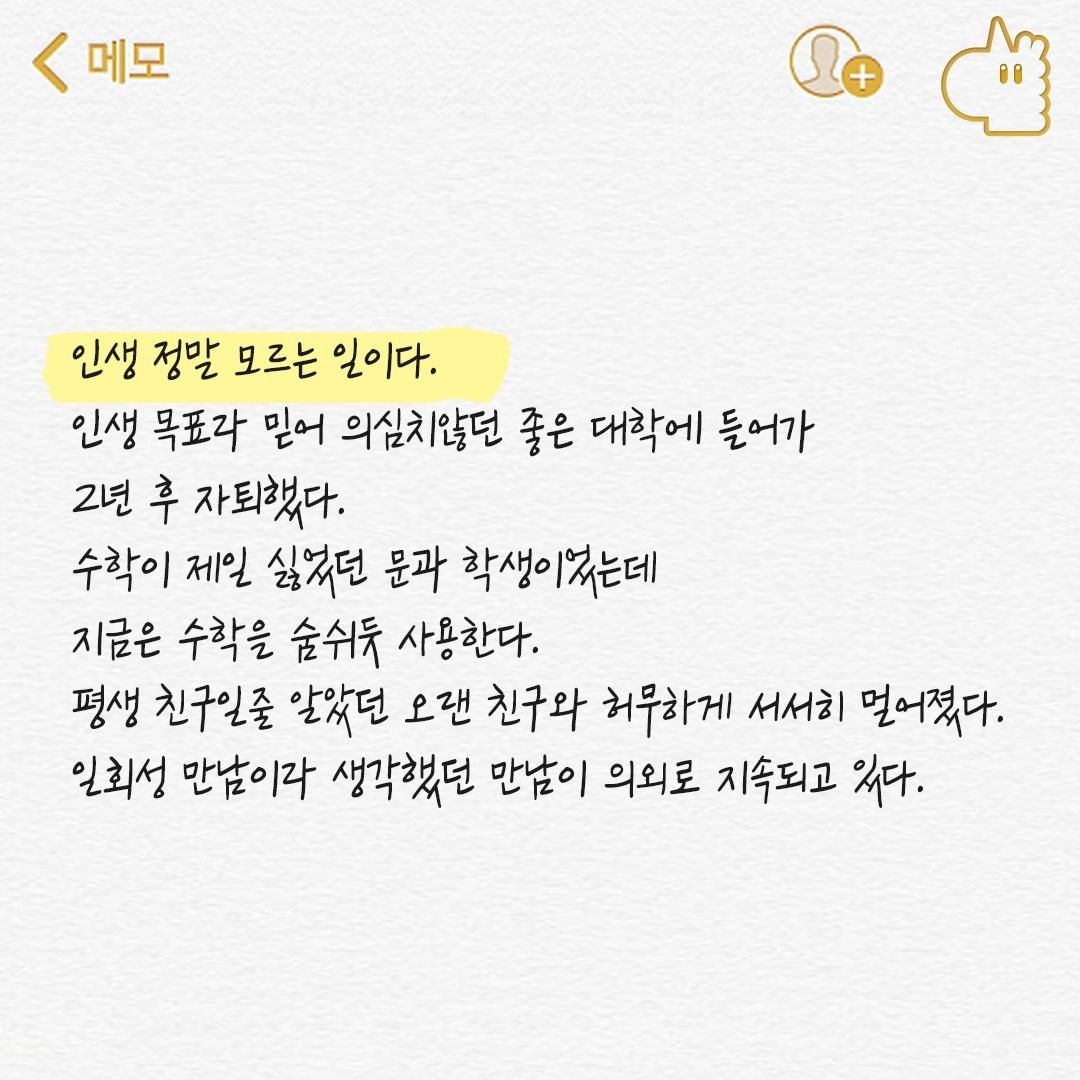 메모
인생 정말 모르는 일이다.
인생 목표라 믿어 의심치않던 좋은 대학에 들어가
2년 후 자퇴했다.
수학이 제일 싫었던 문과 학생이었는데
지금은 수학을 숨쉬듯 사용한다.
평생 친구일줄 알았던 오랜 친구와 허무하게 서서히 멀어졌다.
일회성 만남이라 생각했던 만남이 의외로 지속되고 있다.